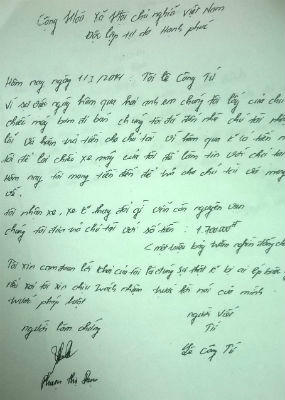 Cộng Hoà Xã Hội chủ nghĩa Việt Nam
Độc lập tự do Hạnh phúc
Hôm nay ngày 11/3/2014. Tôi lê Công Tú
Vì sơ ngày hôm qua hai anh em chúng tôi lấy của chú
chiếc máy bơm đi bán chúng tôi đã đến nhà chú tôi nhận
lỗi và hứa trả tiền cho chú tôi. vì hôm qua k có tiền
tôi để lại chiếc xe máy của tôi để làm tin với chú
Hôm nay tôi mang tiền đến để trả cho chú tôi và mang
về.
tôi nhận xe, xe k thay đổi gì vẫn còn nguyên vẹn
chúng tôi đưa trả chú tôi với số tiền : 1.700.000đ
( một triệu bảy trăm nghìn đồng
Tôi xin cam đoan lời khai của tôi là đúng sự thật k bị ai ép
tôi xin chịu trách nhiệm trước lời nói của mình
trước pháp luật
người làm chứng
người viết
Tú
Lê Công Tú
Phạm thị